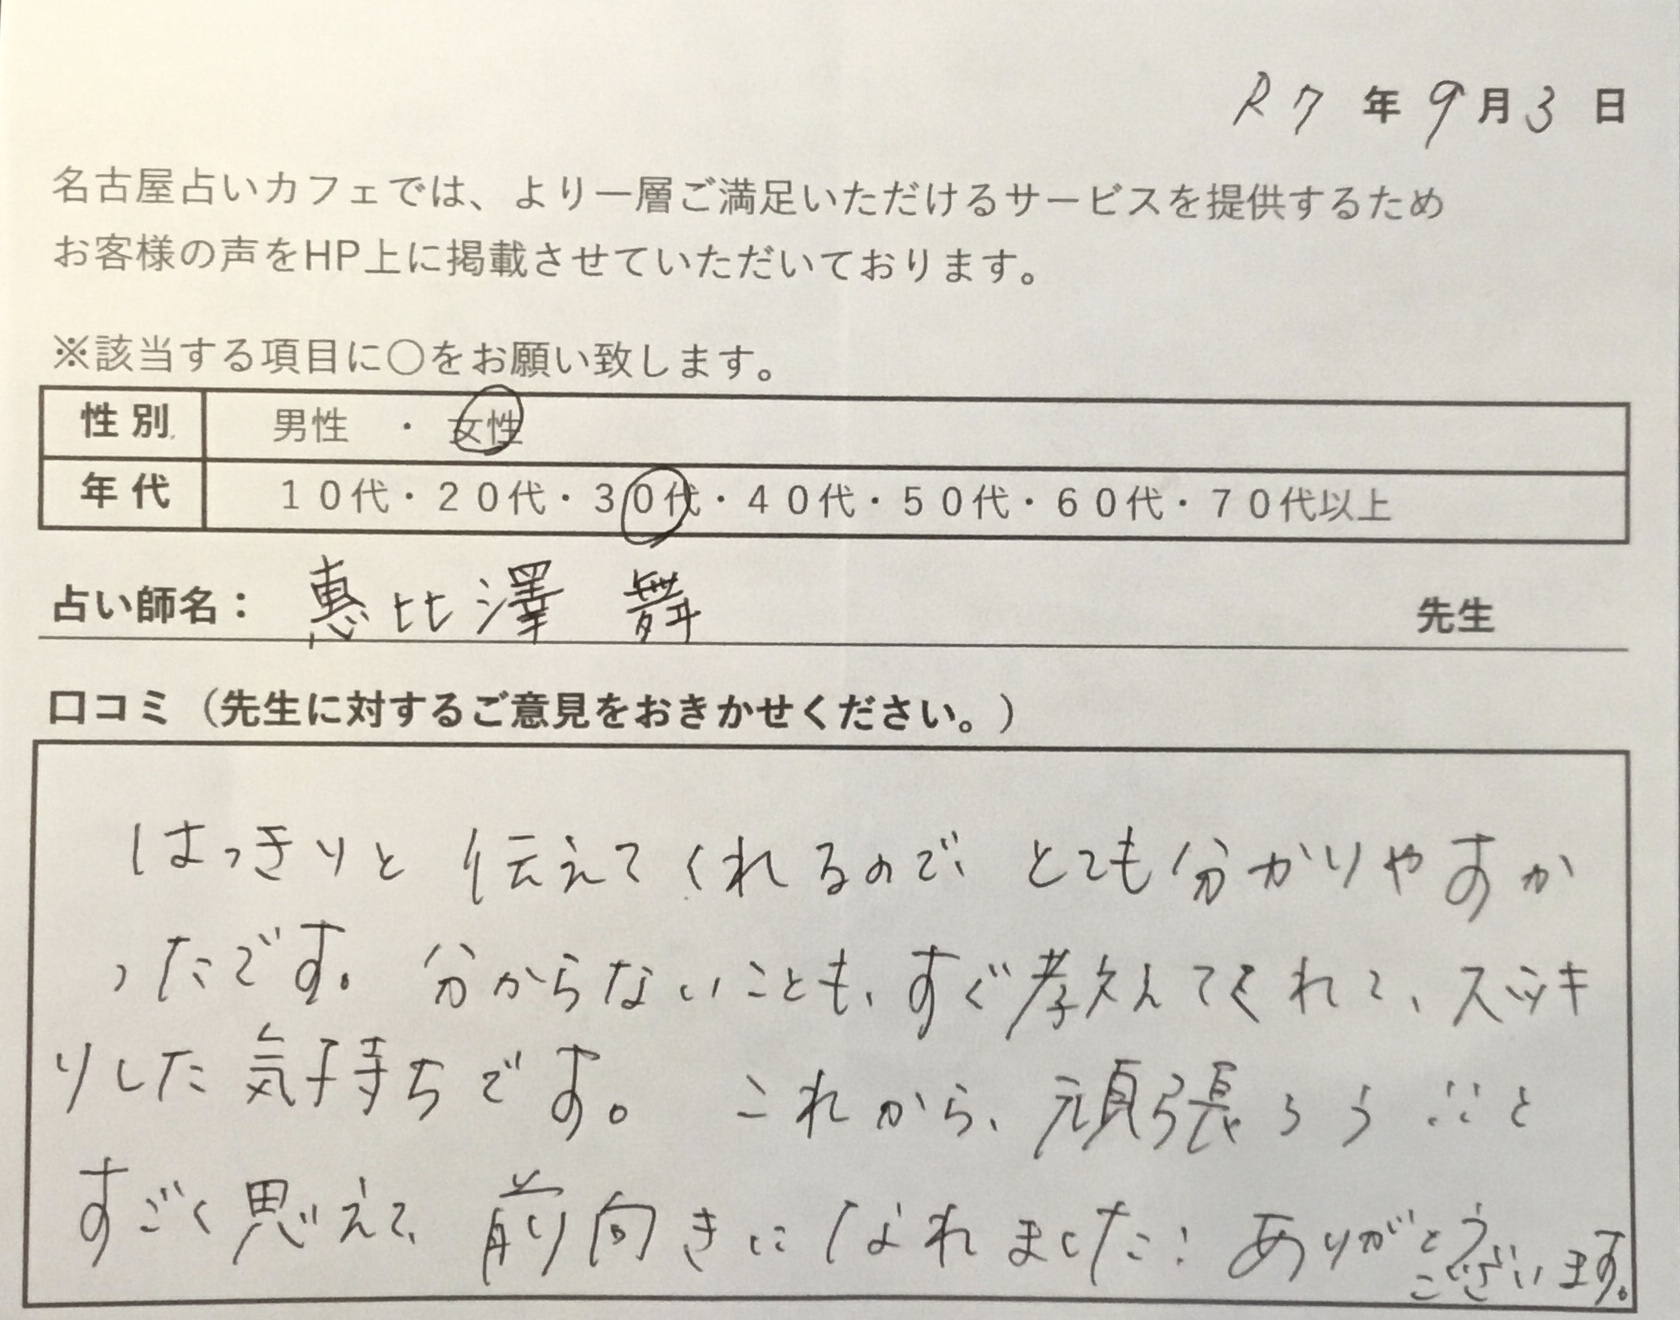 R7年9月3日
名古屋占いカフェでは、より一層ご満足いただけるサービスを提供するため
お客様の声をHP上に掲載させていただいております。
※該当する項目に〇をお願い致します。
性別 男性 ・ 女性
年代 10代・20代・30代・40代・50代・60代・70代以上
占い師名： 恵比澤 舞 先生
口コミ（先生に対するご意見をおきかせください。）
はっきりと伝えてくれるので、とても分かりやすか
ったです。分からないことも、すぐ教えてくれて、スッキ
りした気持ちです。 これから、頑張ろう!!と
すごく思えて、前向きになれました! ありがとう
ございます。